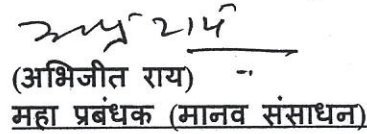 (अभिजीत राय)
महा प्रबंधक (मानव संसाधन)